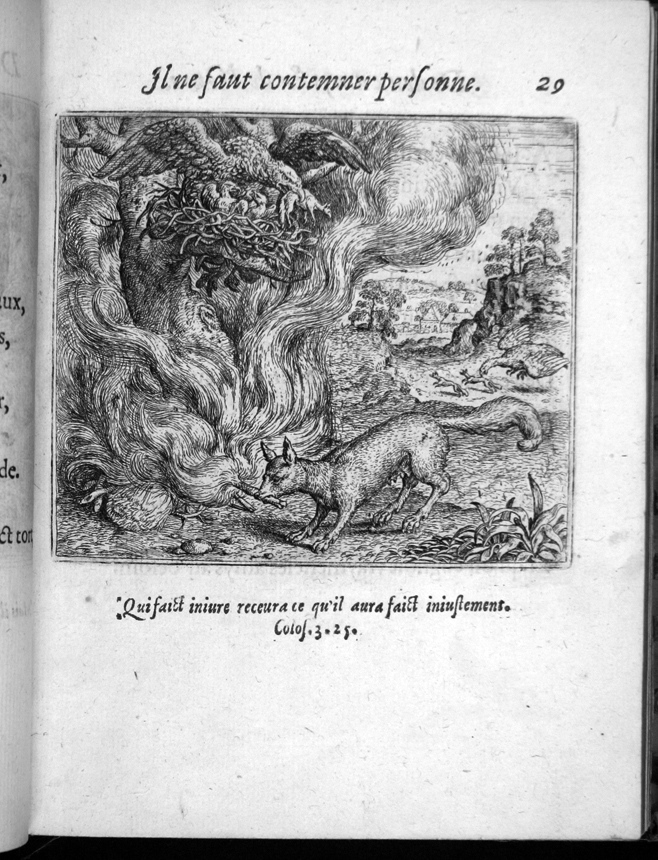 Il ne faut contemner personne. 29
aux,
s,
r,
de.
Qui faict iniure receura ce qu'il aura faict iniustement.
Colos. 3. 25.